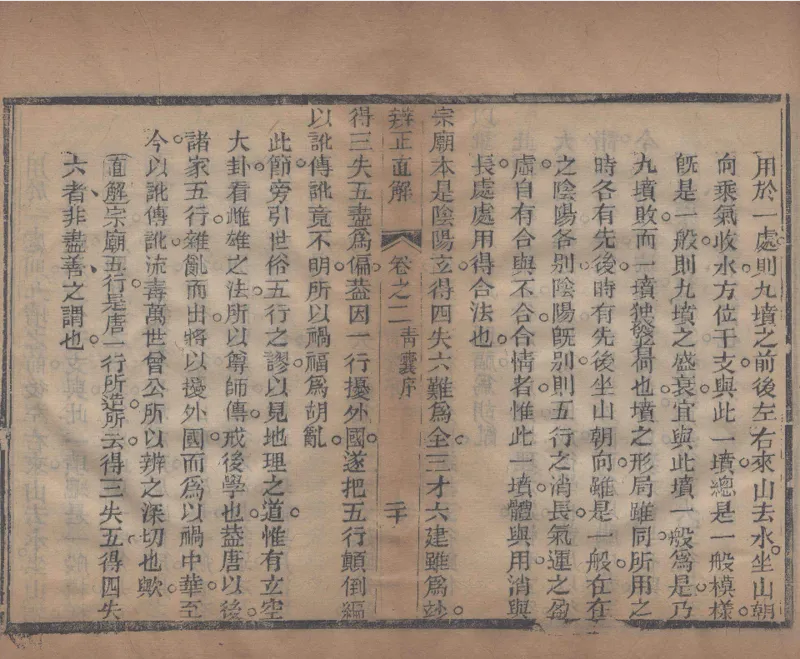 用於一處則九墳之前後左右來山去水坐山朝
向乘氣收水方位干支與此一墳總是一般模樣
既是一般則九墳之盛衰宜與此墳一般為是乃
九墳敗而一墳獨發者何也墳之形局雖同所用之
時各有先後時有先後坐山朝向雖是一般在在
之陰陽各別陰陽既別則五行之消長氣運之盈
虛自有合與不合合情者惟此一墳體與用消與
長處處用得合法也
宗廟本是陰陽立得四失六難為全三才六建雖為竗
辨正直解
卷之二青囊序
二十
得三失五盡為偏葢因一行擾外國遂把五行顛倒編
以訛傳訛竟不明所以禍福為胡亂
此節旁引世俗五行之謬以見地理之道惟有立空
大卦看雌雄之法所以尊師傳戒後學也葢唐以後
諸家五行雜亂而出將以擾外國而為以禍中華至
今以訛傳訛流毒萬世曾公所以辨之深切也歟
直解宗廟五行是唐一行所造所云得三失五得四失
六者非盡善之謂也